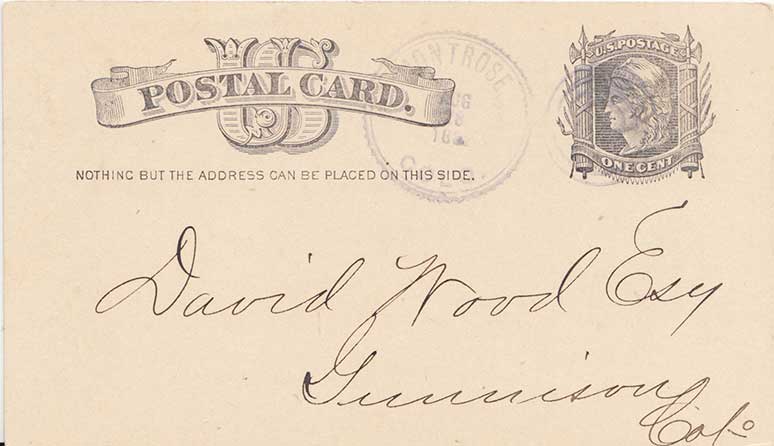 US
POSTAL CARD.
NOTHING BUT THE ADDRESS CAN BE PLACED ON THIS SIDE.
MONTROSE
AUG
8
COLO.
U.S. POSTAGE
ONE CENT
David Wood Esq
Gunnison
Colo